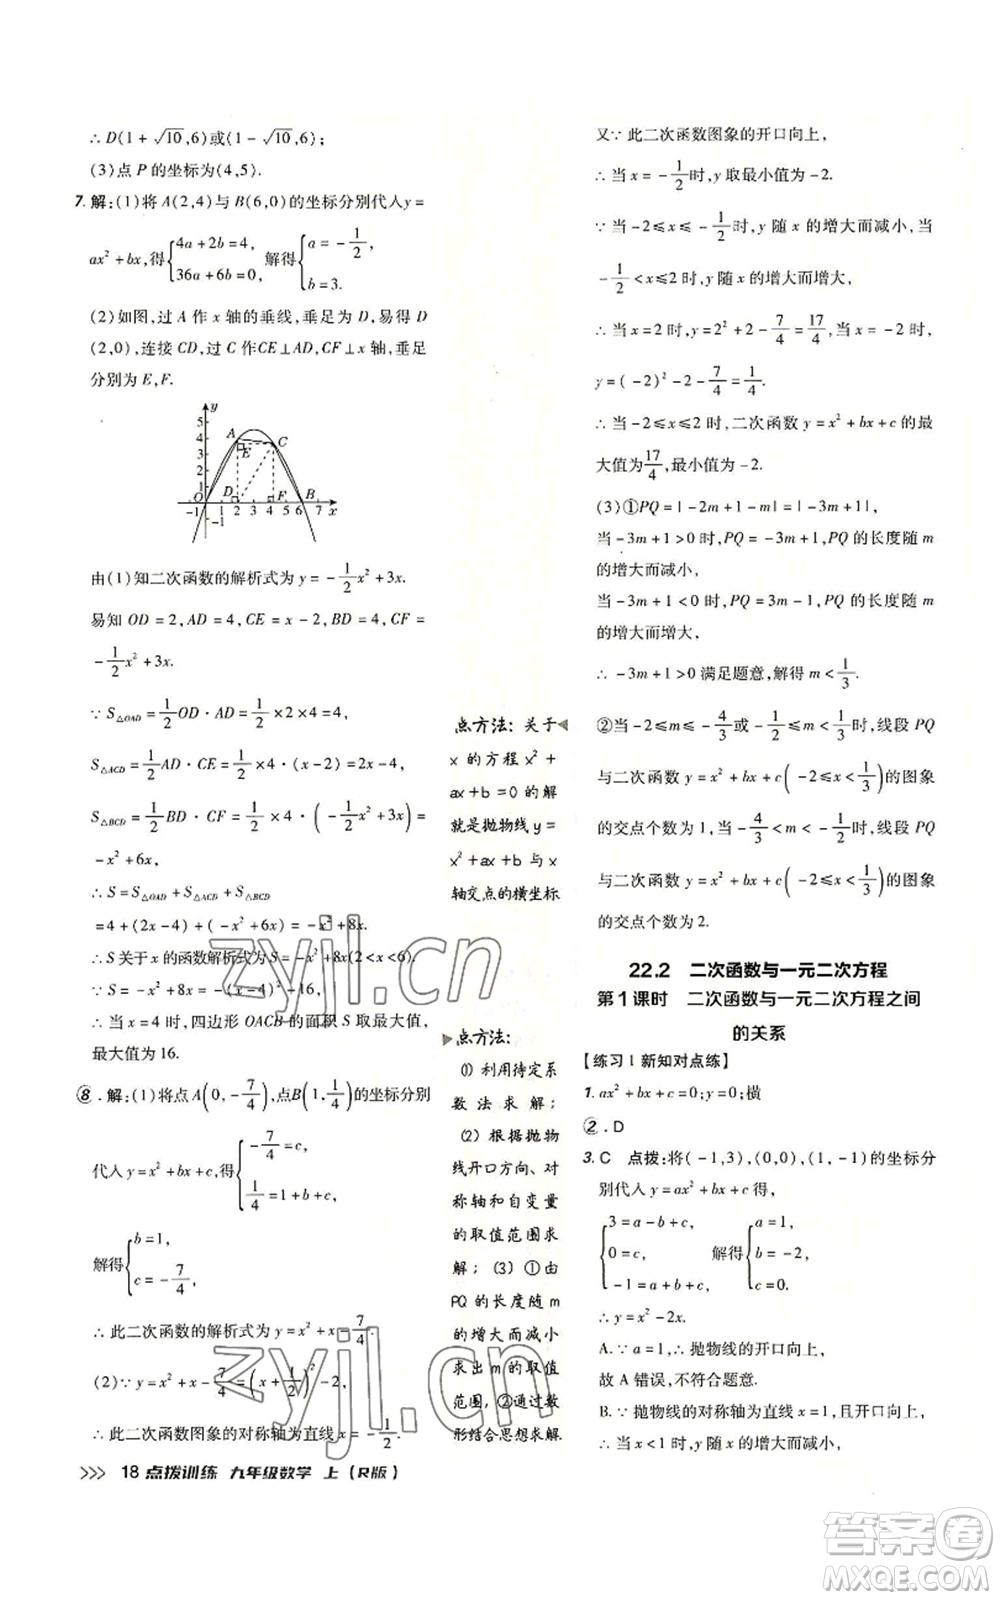 ∴ D(1+√10,6)或(1-√10,6);
(3)点 P 的坐标为(4,5).
7. 解:(1)将 A(2,4)与 B(6,0)的坐标分别代入y=
ax²+bx,得{4a+2b=4, 36a+6b=0, 解得{a=-1/2, b=3.
(2)如图,过 A 作 x 轴的垂线,垂足为 D,易得 D
(2,0),连接 CD,过 C 作CE⊥AD,CF⊥x 轴,垂足
分别为 E,F.
y
5
4
3
2
1
A
E
C
O
D
F
B
-1
1 2 3 4 5 6 7 x
-1
由(1)知二次函数的解析式为 y=-1/2x²+3x.
易知 OD=2,AD=4,CE=x-2,BD=4,CF=
-1/2x²+3x.
∵ S△OAD=1/2OD·AD=1/2×2×4=4,
S△ACD=1/2AD·CE=1/2×4×(x-2)=2x-4,
S△BCD=1/2BD·CF=1/2×4×(-1/2x²+3x)=
-x²+6x,
∴ S=S△OAD+S△ACD+S△BCD
=4+(2x-4)+(-x²+6x)=-x²+8x.
∴ S 关于 x 的函数解析式为 S=-x²+8x(2<x<6).
∵ S=-x²+8x=-(x-4)²+16,
∴ 当 x=4 时,四边形 OACB 的面积 S 取最大值,
最大值为 16.
8. 解:(1)将点A(0,-7/4),点B(1,1/4)的坐标分别
代入 y=x²+bx+c,得{-7/4=c, 1/4=1+b+c,
解得{b=1, c=-7/4,
∴ 此二次函数的解析式为 y=x²+x-7/4.
(2)∵ y=x²+x-7/4=(x+1/2)²-2,
∴ 此二次函数图象的对称轴为直线 x=-1/2.
>>> 18 点拨训练 九年级数学 上(R版)
点方法:关于
x 的方程 x²+
ax+b=0 的解
就是抛物线 y=
x²+ax+b 与 x
轴交点的横坐标
点方法:
(1)利用待定系
数法求解;
(2)根据抛物
线开口方向、对
称轴和自变量
的取值范围求
解;(3)①由
PQ的长度随m
的增大而减小
求出m的取值
范围,②通过数
形结合思想求解
又∵ 此二次函数图象的开口向上,
∴ 当 x=-1/2时,y 取最小值为-2.
∵ 当 -2≤x≤-1/2时,y 随 x 的增大而减小,当
-1/2<x≤2 时,y 随 x 的增大而增大,
∴ 当 x=2 时,y=2²+2-7/4=17/4,当 x=-2 时,
y=(-2)²-2-7/4=1/4.
∴ 当 -2≤x≤2 时,二次函数 y=x²+bx+c 的最
大值为17/4,最小值为-2.
(3)①PQ=|-2m+1-m|=|-3m+1|,
当 -3m+1>0 时,PQ=-3m+1,PQ 的长度随 m
的增大而减小,
当 -3m+1<0 时,PQ=3m-1,PQ 的长度随 m
的增大而增大,
∴ -3m+1>0 满足题意,解得 m<1/3.
②当-2≤m≤-4/3或-1/2≤m<1/3时,线段 PQ
与二次函数 y=x²+bx+c(-2≤x<1/3)的图象
的交点个数为 1,当-4/3<m<-1/2时,线段 PQ
与二次函数 y=x²+bx+c(-2≤x<1/3)的图象
的交点个数为 2.
22.2 二次函数与一元二次方程
第1课时 二次函数与一元二次方程之间
的关系
【练习1 新知对点练】
1. ax²+bx+c=0;横
2. D
3. C 点拨:将(-1,3),(0,0),(1,-1)的坐标分
别代入 y=ax²+bx+c 得,
{3=a-b+c, 0=c, -1=a+b+c, 解得{a=1, b=-2, c=0.
∴ y=x²-2x.
A.∵ a=1,∴ 抛物线的开口向上,
故 A 错误,不符合题意.
B.∵ 抛物线的对称轴为直线 x=1,且开口向上,
zyjl.cn
zyjl.cn
答案卷
MXQE.COM